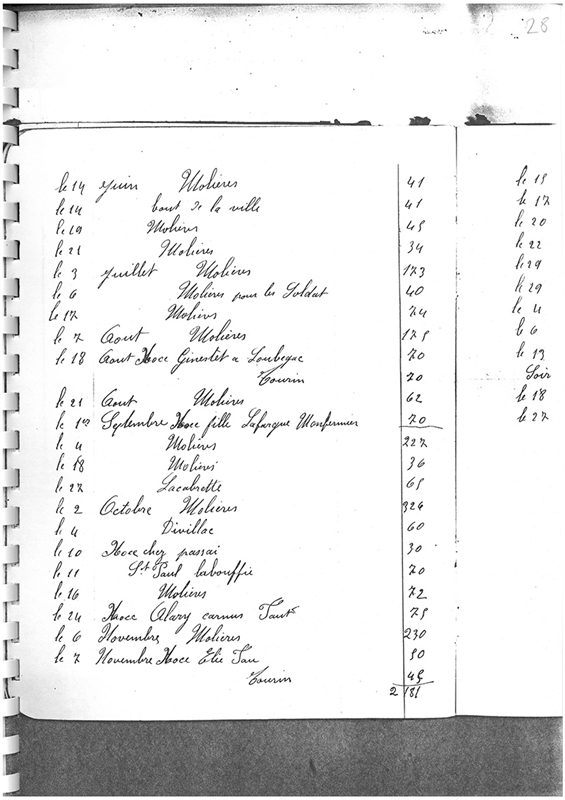 28
le 14 juin Molières 41
le 14 bout de la ville 41
le 19 Molières 45
le 21 Molières 34
le 3 juillet Molières 173
le 6 Molières pour les Soldat 40
le 17 Molières 74
le 7 Aout Molières 175
le 18 Aout Noce Ginestet a Loubegac 70
Tourin 70
le 21 Aout Molières 62
le 1er Septembre Noce fille Lafargue Monfermier 70
le 4 Molières 227
le 18 Molières 36
le 27 Lacabrette 65
le 2 Octobre Molières 324
le 4 Divillac 60
le 10 Noce chez passai 30
le 11 St Paul labouffie 70
le 16 Molières 72
le 24 Noce Alary carnus 75
le 6 Novembre Molières 230
le 7 Novembre Noce Elie 50
Tourin 45
2 181
le 15
le 17
le 20
le 22
le 29
le 29
le 4
le 6
le 13
Soir
le 18
le 27